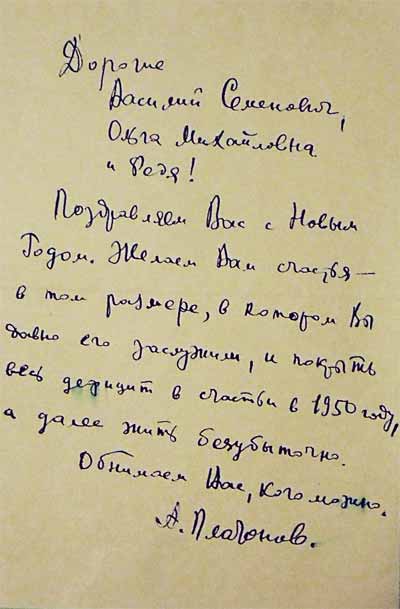 Дорогие
Василий Семенович,
Ольга Михайловна
и Федя!
Поздравляем Вас с Новым
Годом. Желаем Вам счастья —
в том размере, в котором Вы
давно его заслужили, и покрыть
весь дефицит в счастьи в 1950 году,
а далее жить безубыточно.
Обнимаем Вас, кого можно.
А. Платонов.